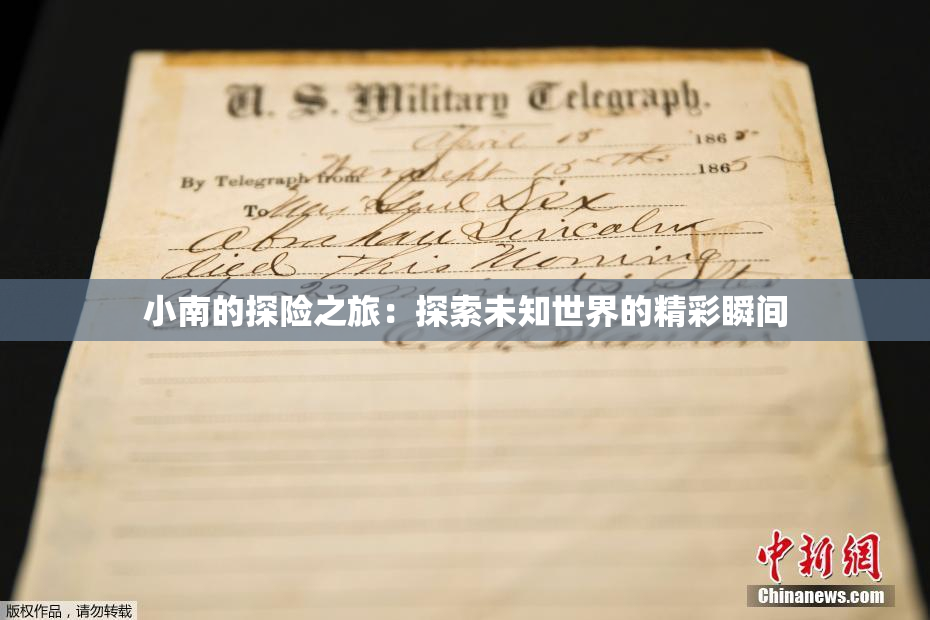 U. S. Military Telegraph.
April 15 1865
By Telegraph from War Dept 15th 1865
To Maj Genl Dix
Abraham Lincoln
died this morning
at 22 minutes after
小南的探险之旅：探索未知世界的精彩瞬间
E. M. Stanton
中新網
Chinanews.com
版权作品，请勿转载